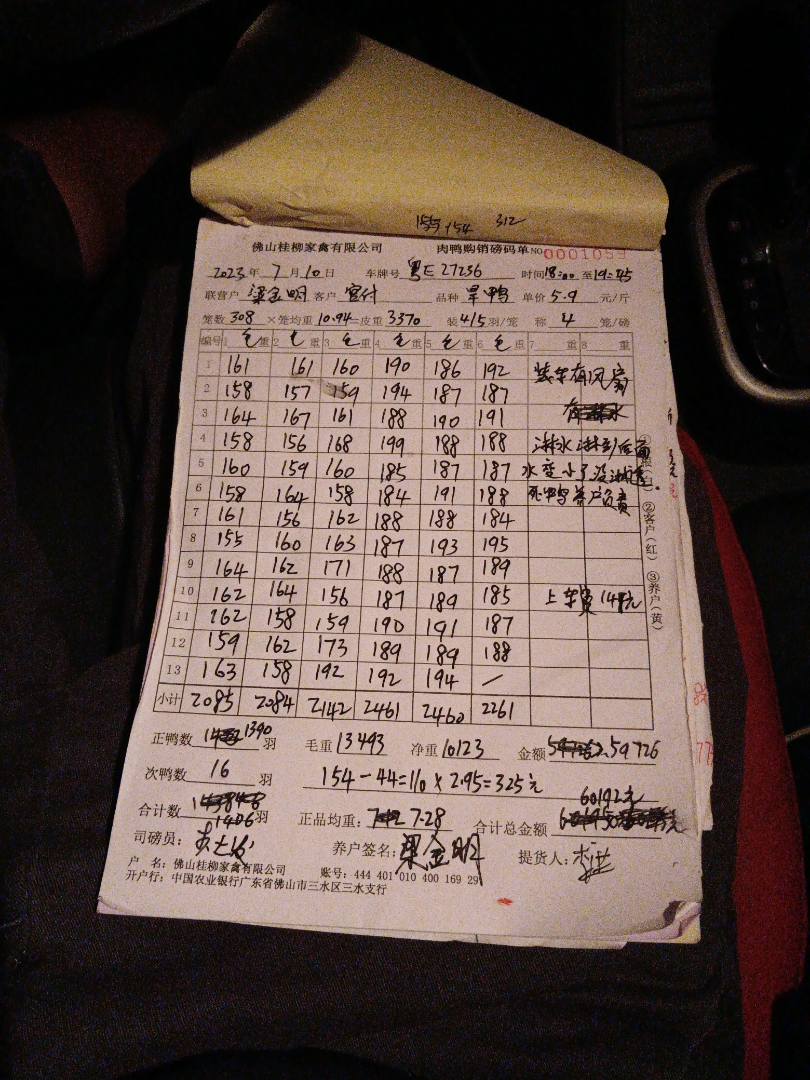 155 154 312
佛山桂柳家禽有限公司 肉鸭购销磅码单 NO 0001059
2023年 7月 10日 车牌号 粤E27236 时间18:00至19:45
联营户 梁金明 客户 客付 品种 旱鸭 单价 5.9 元/斤
笼数 308 ×笼均重 10.94=皮重 3370 装4/5羽/笼 称 4 笼/磅
编号 1 毛重 2 毛重 3 毛重 4 毛重 5 毛重 6 毛重 7 重 8 重
1 161 161 160 190 186 192 装车有风扇
2 158 157 159 194 187 187
3 164 167 161 188 190 191 水
4 158 156 168 199 188 188 淋水淋到后面
5 160 159 160 185 187 187 水变小了没
6 158 164 158 184 191 188 死鸭养户负责
7 161 156 162 188 188 184
8 155 160 163 187 193 195
9 164 162 171 188 187 189
10 162 164 156 187 189 185 上车费 149元
11 162 158 159 190 191 187
12 159 162 173 189 189 188
13 163 158 192 192 194 /
小计 2085 2084 2142 2461 2460 2261
②客户(红) ③养户(黄)
正鸭数 1390 羽 毛重 13493 净重 10123 金额 59726
次鸭数 16 羽 154-44=110×2.95=325元
合计数 1406 羽 正品均重: 7.28 合计总金额 60192元
司磅员: 养户签名: 梁金明 提货人:
户 名: 佛山桂柳家禽有限公司 账号: 444 401 010 400 169 29
开户行: 中国农业银行广东省佛山市三水区三水支行